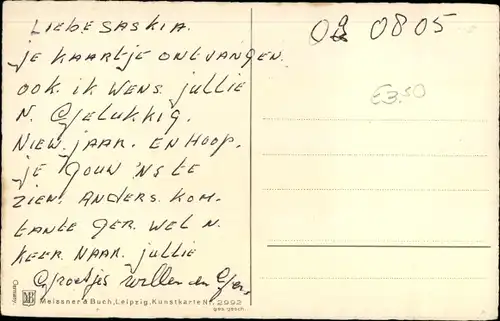 LIEBE SASKIA.
je KAARTJE ONTVANGEN.
OOK. IK WENS. jullie
N. Gjelukkig.
NIEW. JAAR. EN HOOP.
je GOUW 'NS TE
ZIEN. ANDERS. KOM-
TANTE GER. WEL N.
KEER. NAAR. jullie
Groetjes Willem en Ger.
08 0805
E3.50
Germany.
Meissner & Buch, Leipzig, Künstkarte Nr. 2992
ges. gesch.